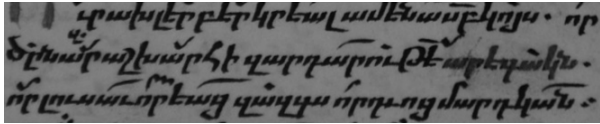 տրախլերբերկրեալ ամենասբկոյս. որ
ծընար աշխարհի զարդարուԹէ արեգակն.
որ լուսաւորեաց զազգս որդւոց մարդկան: